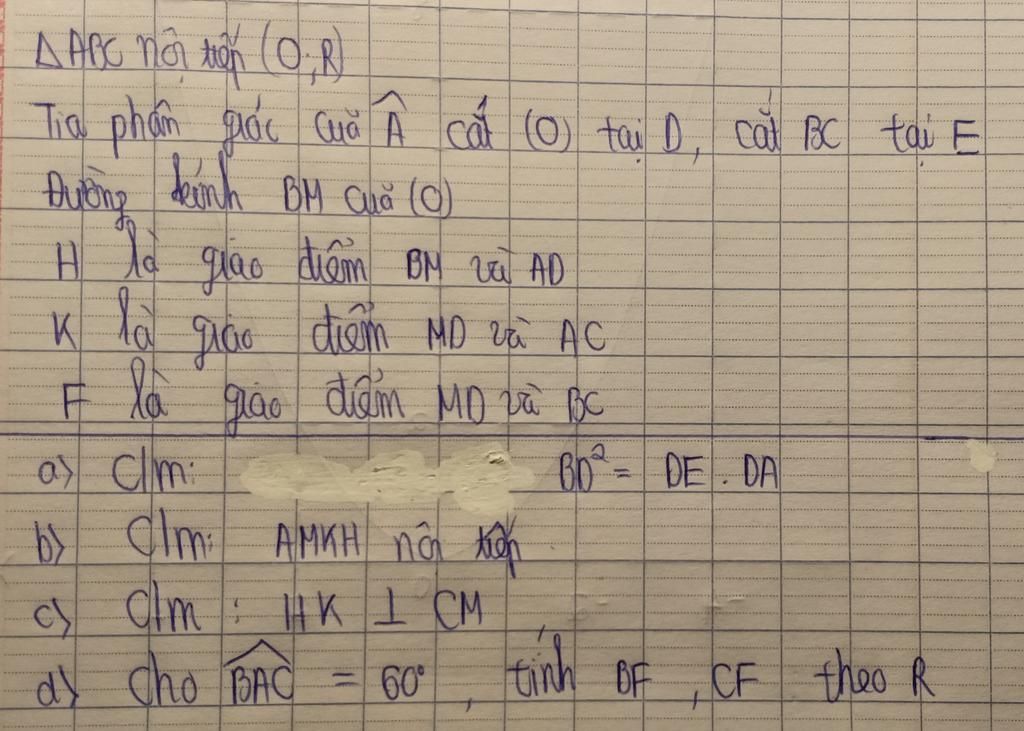 ΔABC nội tiếp (O;R)
Tia phân giác của Â cắt (O) tại D, cắt BC tại E
Đường kính BM của (O)
H là giao điểm BM và AD
K là giao điểm MD và AC
F là giao điểm MD và BC
a) C/m: BD² = DE . DA
b) C/m: AMKH nội tiếp
c) C/m : HK ⊥ CM
d) Cho \widehat{BAC} = 60°, tính BF, CF theo R